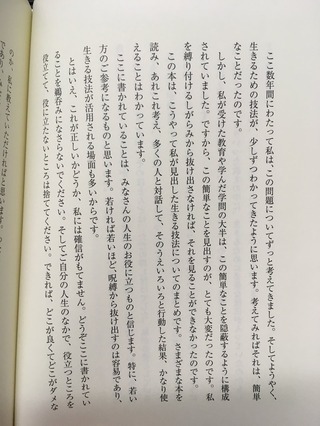 ここ数年間にわたって私は、この問題についてずっと考えてきました。そしてようやく、
生きるための技法が、少しずつわかってきたように思います。考えてみればそれは、簡単
なことだったのです。
しかし、私が受けた教育や学んだ学問の大半は、この簡単なことを隠蔽するように構成
されていました。ですから、この簡単なことを見出すのが、とても大変だったのです。私
を縛り付けるしがらみから抜け出さなければ、それを見ることができなかったのです。
この本は、こうやって私が見出した生きる技法についてのまとめです。さまざまな本を
読み、あれこれ考え、多くの人と対話して、そのうえいろいろと行動した結果、かなり使
えることはわかっています。
ここに書かれていることは、みなさんの人生のお役に立つものと信じます。特に、若い
方のご参考になるものと思います。若ければ若いほど、呪縛から抜け出すのは容易であり、
生きる技法が活用される場面も多いからです。
とはいえ、これが正しいかどうか、私には確信がもてません。どうぞここに書かれてい
ることを鵜呑みになさらないでください。そしてご自分の人生のなかで、役立つところを
役立てて、役に立たないところは捨ててください。できれば、どこが良くてどこがダメな
のか、私に教えていただければと思います。